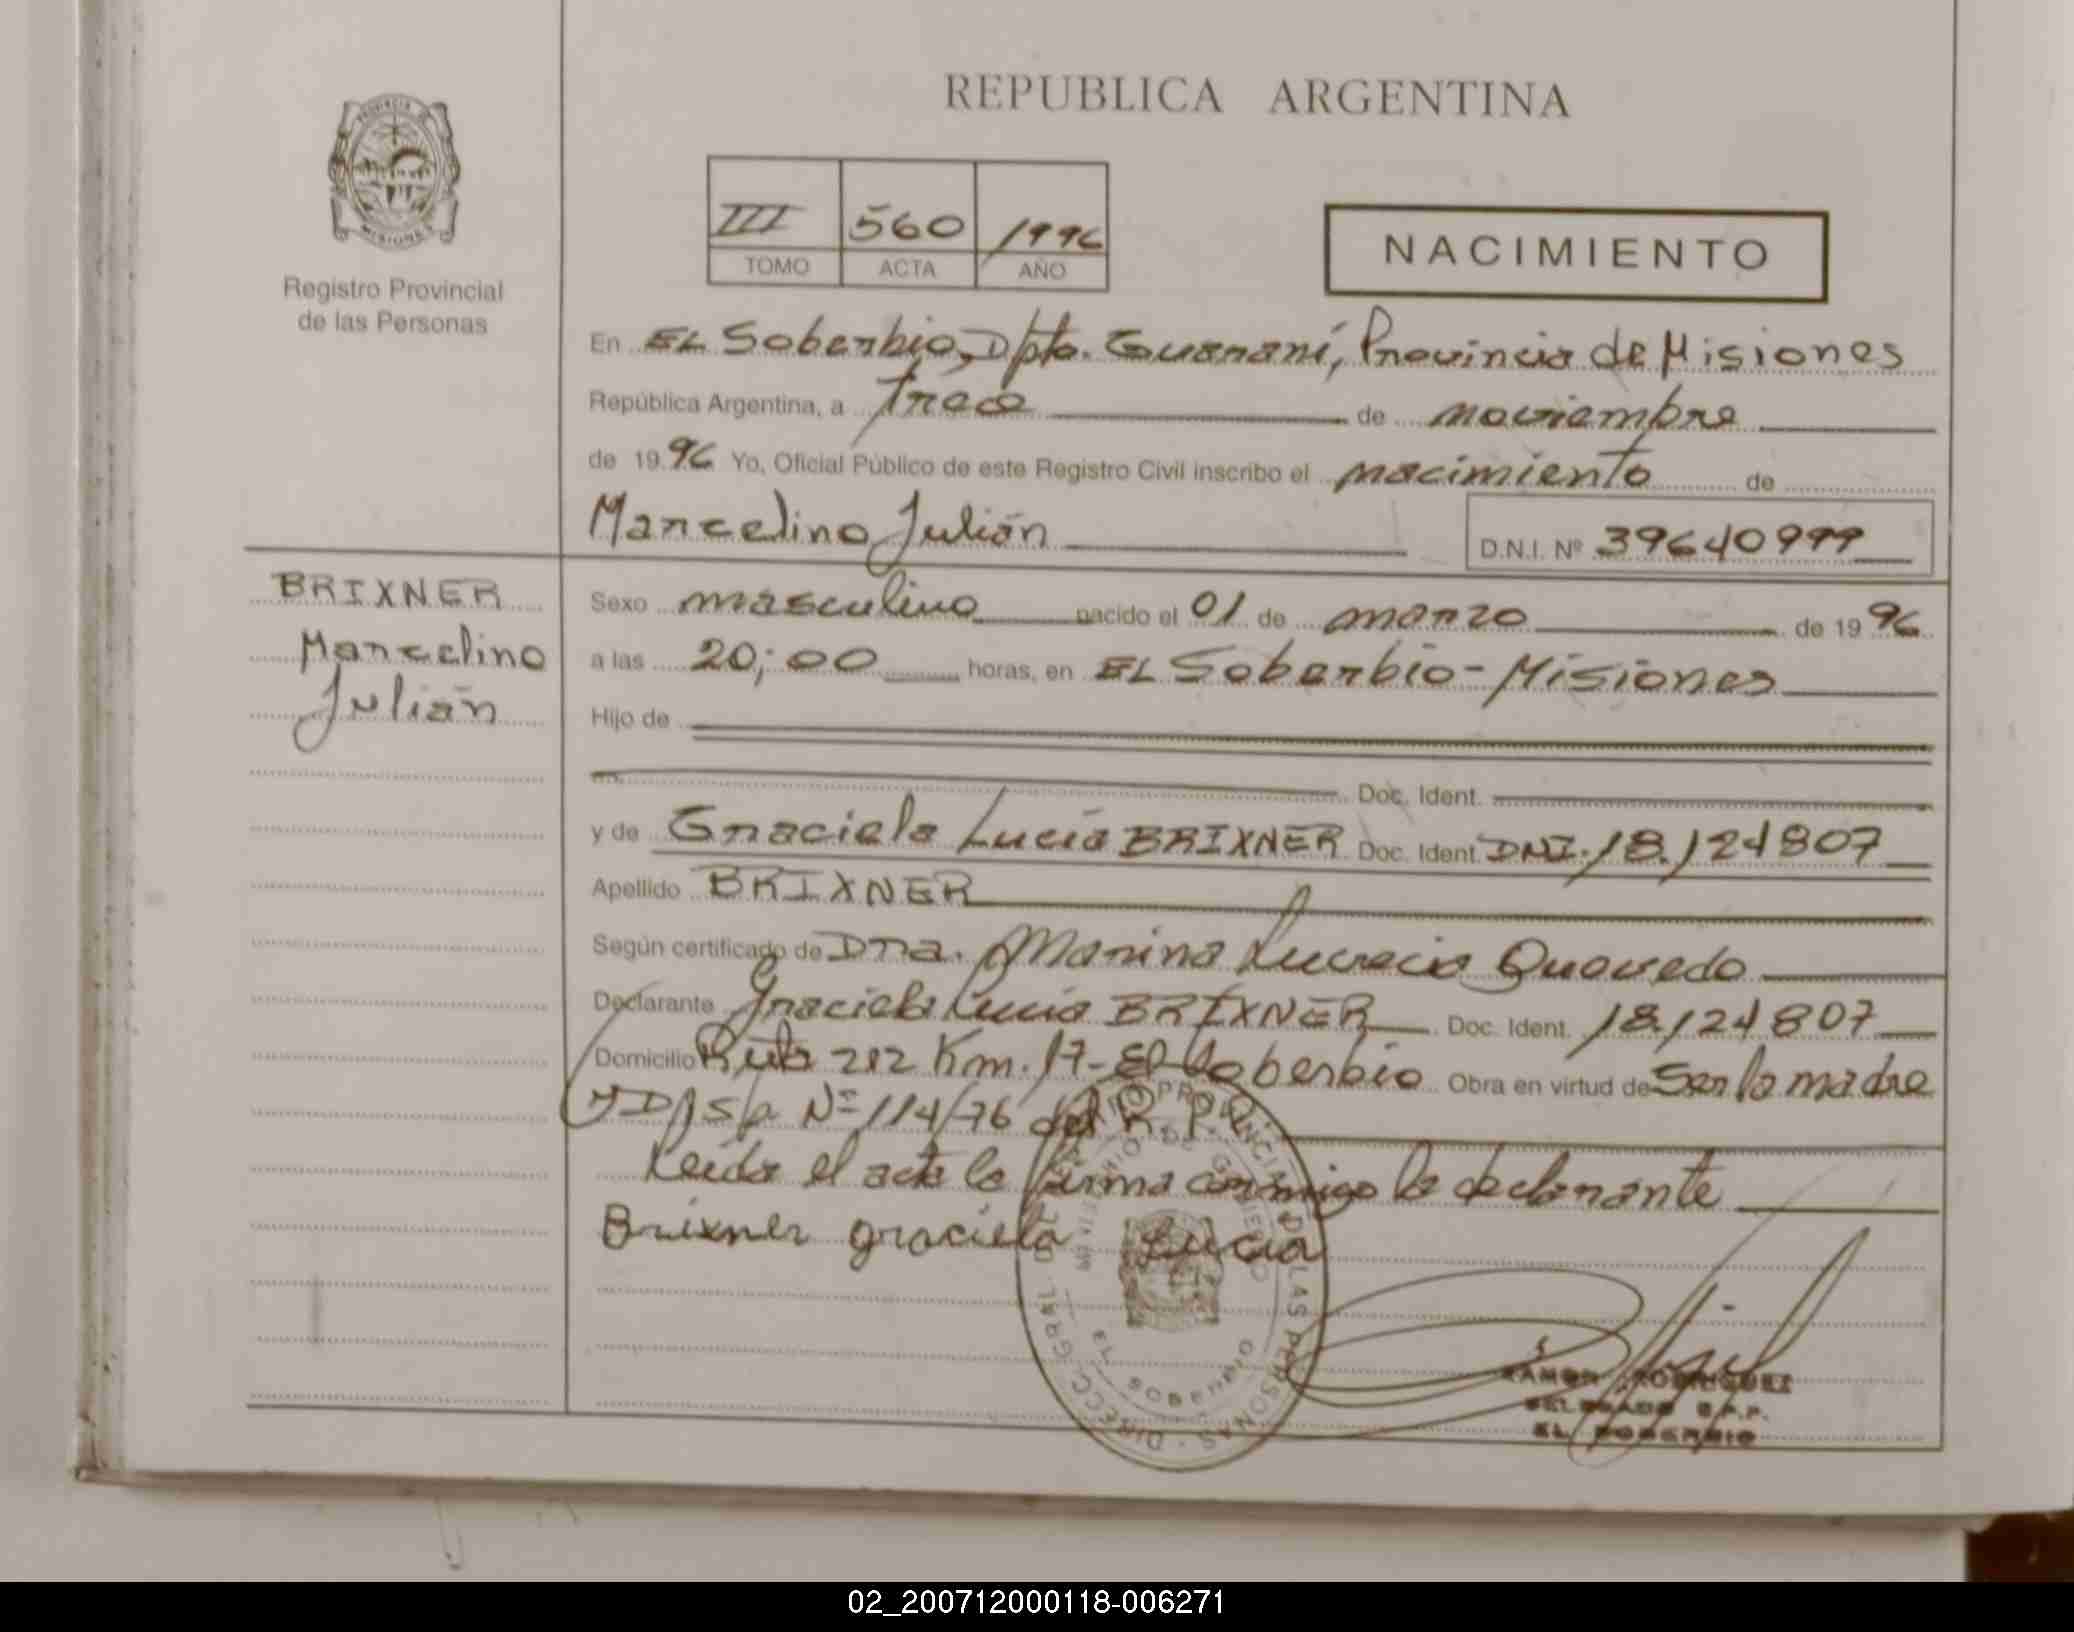 REPUBLICA ARGENTINA
PROVINCIA DE
MISIONES
Registro Provincial
de las Personas
III 560 1996
TOMO ACTA AÑO
NACIMIENTO
En EL Soberbio, Dpto. Guaraní, Provincia de Misiones
República Argentina, a trece de noviembre
de 1996 Yo, Oficial Público de este Registro Civil inscribo el nacimiento de
Marcelino Julián D.N.I. Nº 39640999
BRIXNER
Marcelino
Julián
Sexo masculino nacido el 01 de marzo de 1996
a las 20;00 horas, en EL Soberbio - Misiones
Hijo de
Doc. Ident.
y de Graciela Lucía BRIXNER Doc. Ident. DNI. 18.124807
Apellido BRIXNER
Según certificado de Dra. Marina Lucrecia Quevedo
Declarante Graciela Lucía BRIXNER Doc. Ident. 18.124807
Domicilio Ruta 212 Km. 17 - El Soberbio Obra en virtud de Ser la madre
Nº 114/76 del R.P.P.
Leída el acta la firma conmigo la declarante
Brixner graciela Lucia
DIRECC. GRAL. DEL REGISTRO PROVINCIAL DE LAS PERSONAS
MINISTERIO DE GOBIERNO
EL SOBERBIO
RAMON RODRIGUEZ
DELEGADO R.P.P.
EL SOBERBIO
02_200712000118-006271